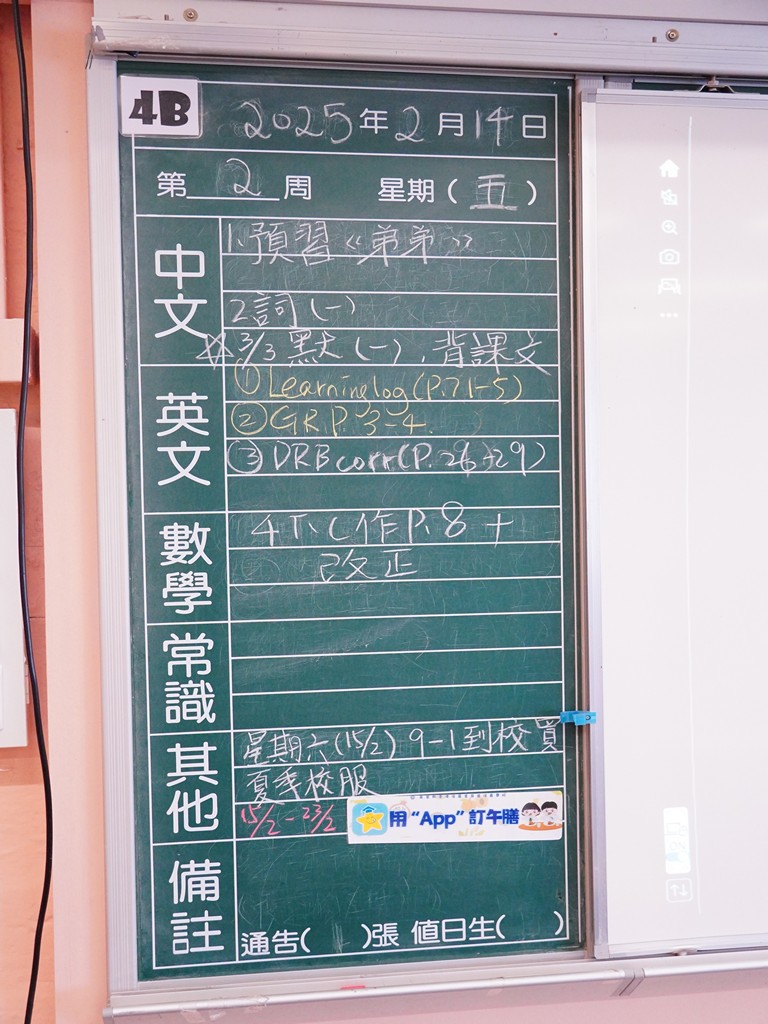 4B
2025年2月14日
第 2 周 星期(五)
中文
1. 預習《弟弟》
2 詞(一)
☆3/3 默(一)、背課文
英文
① Learning log (P.71-5)
② GR P.3-4.
③ DRB corr (P.26+29)
數學
4下 C作 P.8 +
改正
常識
其他
星期六(15/2) 9-1到校買
夏季校服
15/2-23/2
用“App”訂午膳
備註
通告( )張 值日生( )